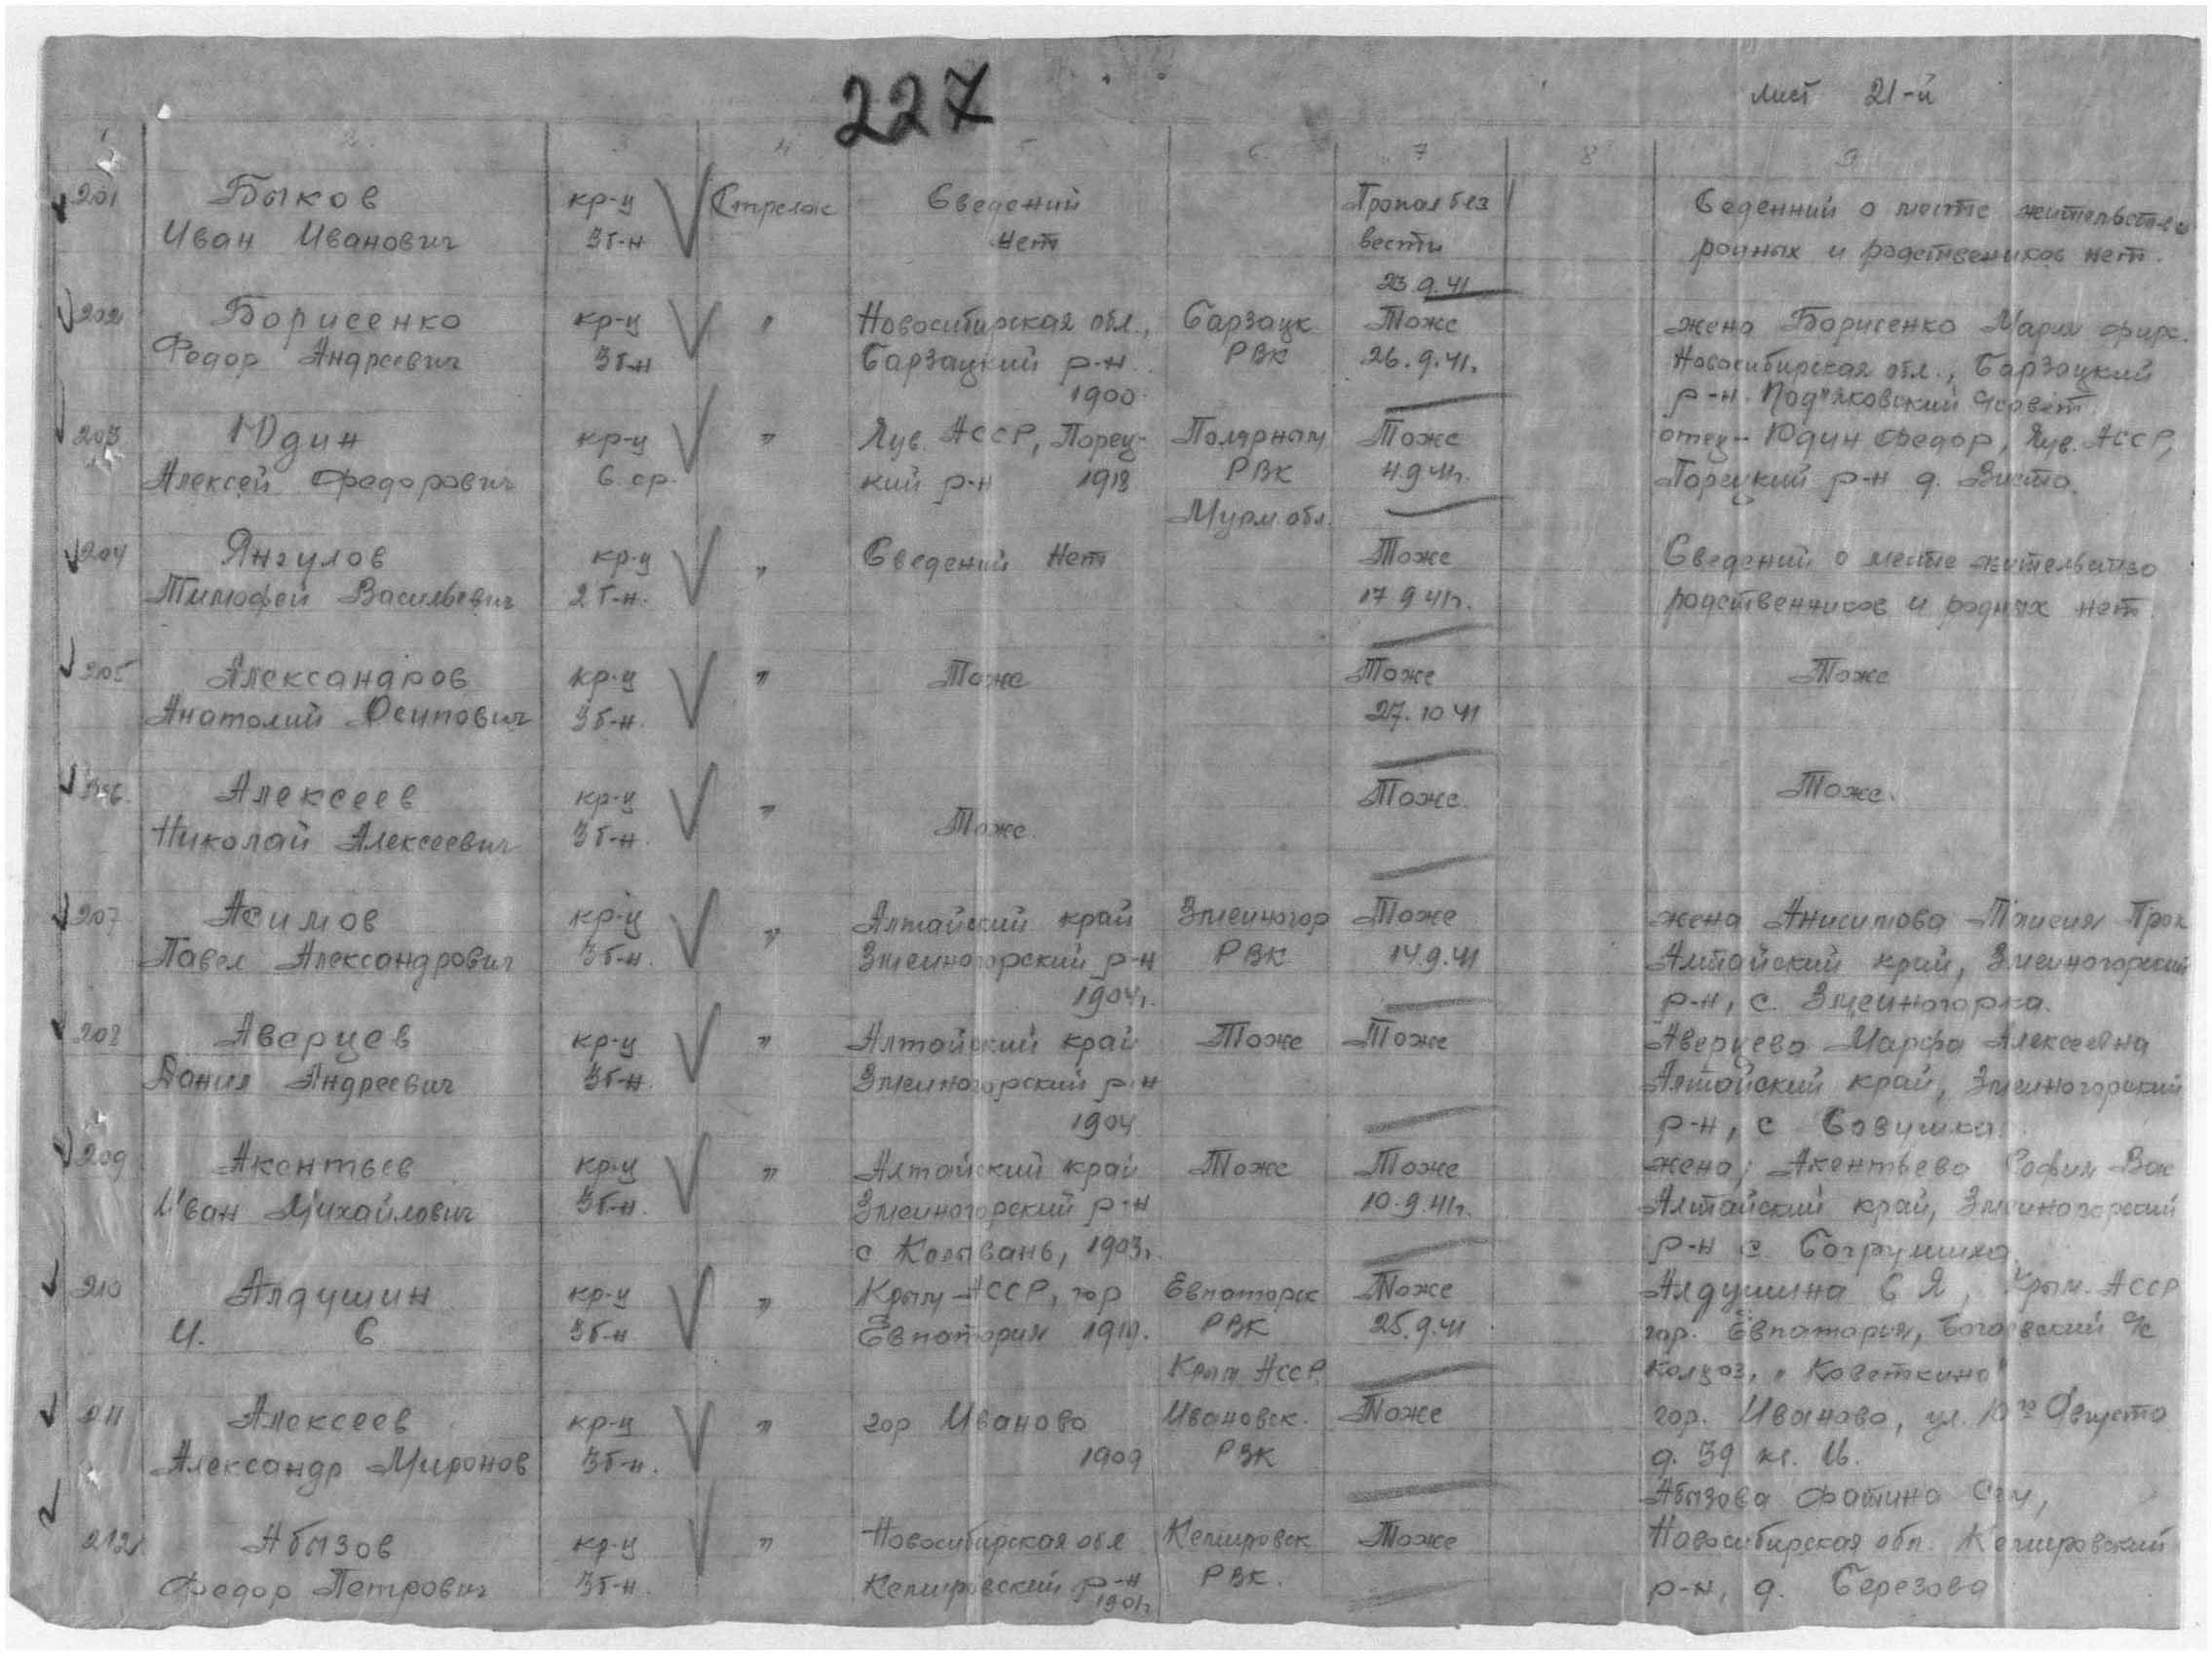 227
лист 21-й
1 2. 3 4 5 6 7 8 9
201 Быков кр-ц Стрелок Сведений Пропал без Сведенний о месте жительства
Иван Иванович 3 б-н нет вести родных и родственников нет.
23.9.41
202 Борисенко кр-ц " Новосибирская обл., Барзацк Тоже жена Борисенко Мария
Федор Андреевич 3 б-н Барзацкий р-н. РВК 26.9.41. Новосибирская обл., Барзацкий
1900. р-н. Под"яковский
203 Юдин кр-ц " Чув. АССР, Порец- Полярный Тоже отец - Юдин Федор, Чув. АССР,
Алексей Федорович с. ср. кий р-н 1918 РВК 4.9.41г. Порецкий р-н д.
Мурм обл.
204 Янгулов кр-ц " Сведений нет Тоже Сведений о месте жительство
Тимофей Васильевич 2 б-н. 17 9 41г. родственников и родных нет.
205 Александров кр-ц " Тоже Тоже Тоже
Анатолий Осипович 3 б-н. 27.10 41
206. Алексеев кр-ц " Тоже. Тоже. Тоже.
Николай Алексеевич 3 б-н.
207 Асимов кр-ц " Алтайский край Змеиногор Тоже жена Анисимова Прок
Павел Александрович 3 б-н. Змеиногорский р-н РВК 14.9.41 Алтайский край, Змеиногорский
1904г. р-н, с. Змеиногорка.
208 Аверцев кр-ц " Алтайский край Тоже Тоже Аверцева Марфа Алексеевна
Данил Андреевич 3 б-н. Змеиногорский р-н Алтайский край, Змеиногорский
1904 р-н, с Савушка.
209 Акентьев кр-ц " Алтайский край Тоже Тоже жена; Акентьева София Вас
Иван Михайлович 3 б-н. Змеиногорский р-н 10.9.41г. Алтайский край, Змеиногорский
с Колывань, 1903г. р-н с.
210 Алдушин кр-ц " Крым АССР, гор Евпаторск Тоже Алдушина С Я, Крым. АССР
И. С 3 б-н Евпатория РВК 25.9.41 гор. Евпатория, с/с
Крым АССР. колхоз,
211 Алексеев кр-ц " гор Иваново Ивановск. Тоже гор. Иваново, ул. 10го Августа
Александр Миронов 3 б-н. 1909 РВК д. 39
Абызова
212 Абызов кр-ц " Новосибирская обл Кемировск Тоже Новосибирская обл. Кемировский
Федор Петрович 3 б-н. Кемировский р-н РВК. р-н, д. Березова
1901г